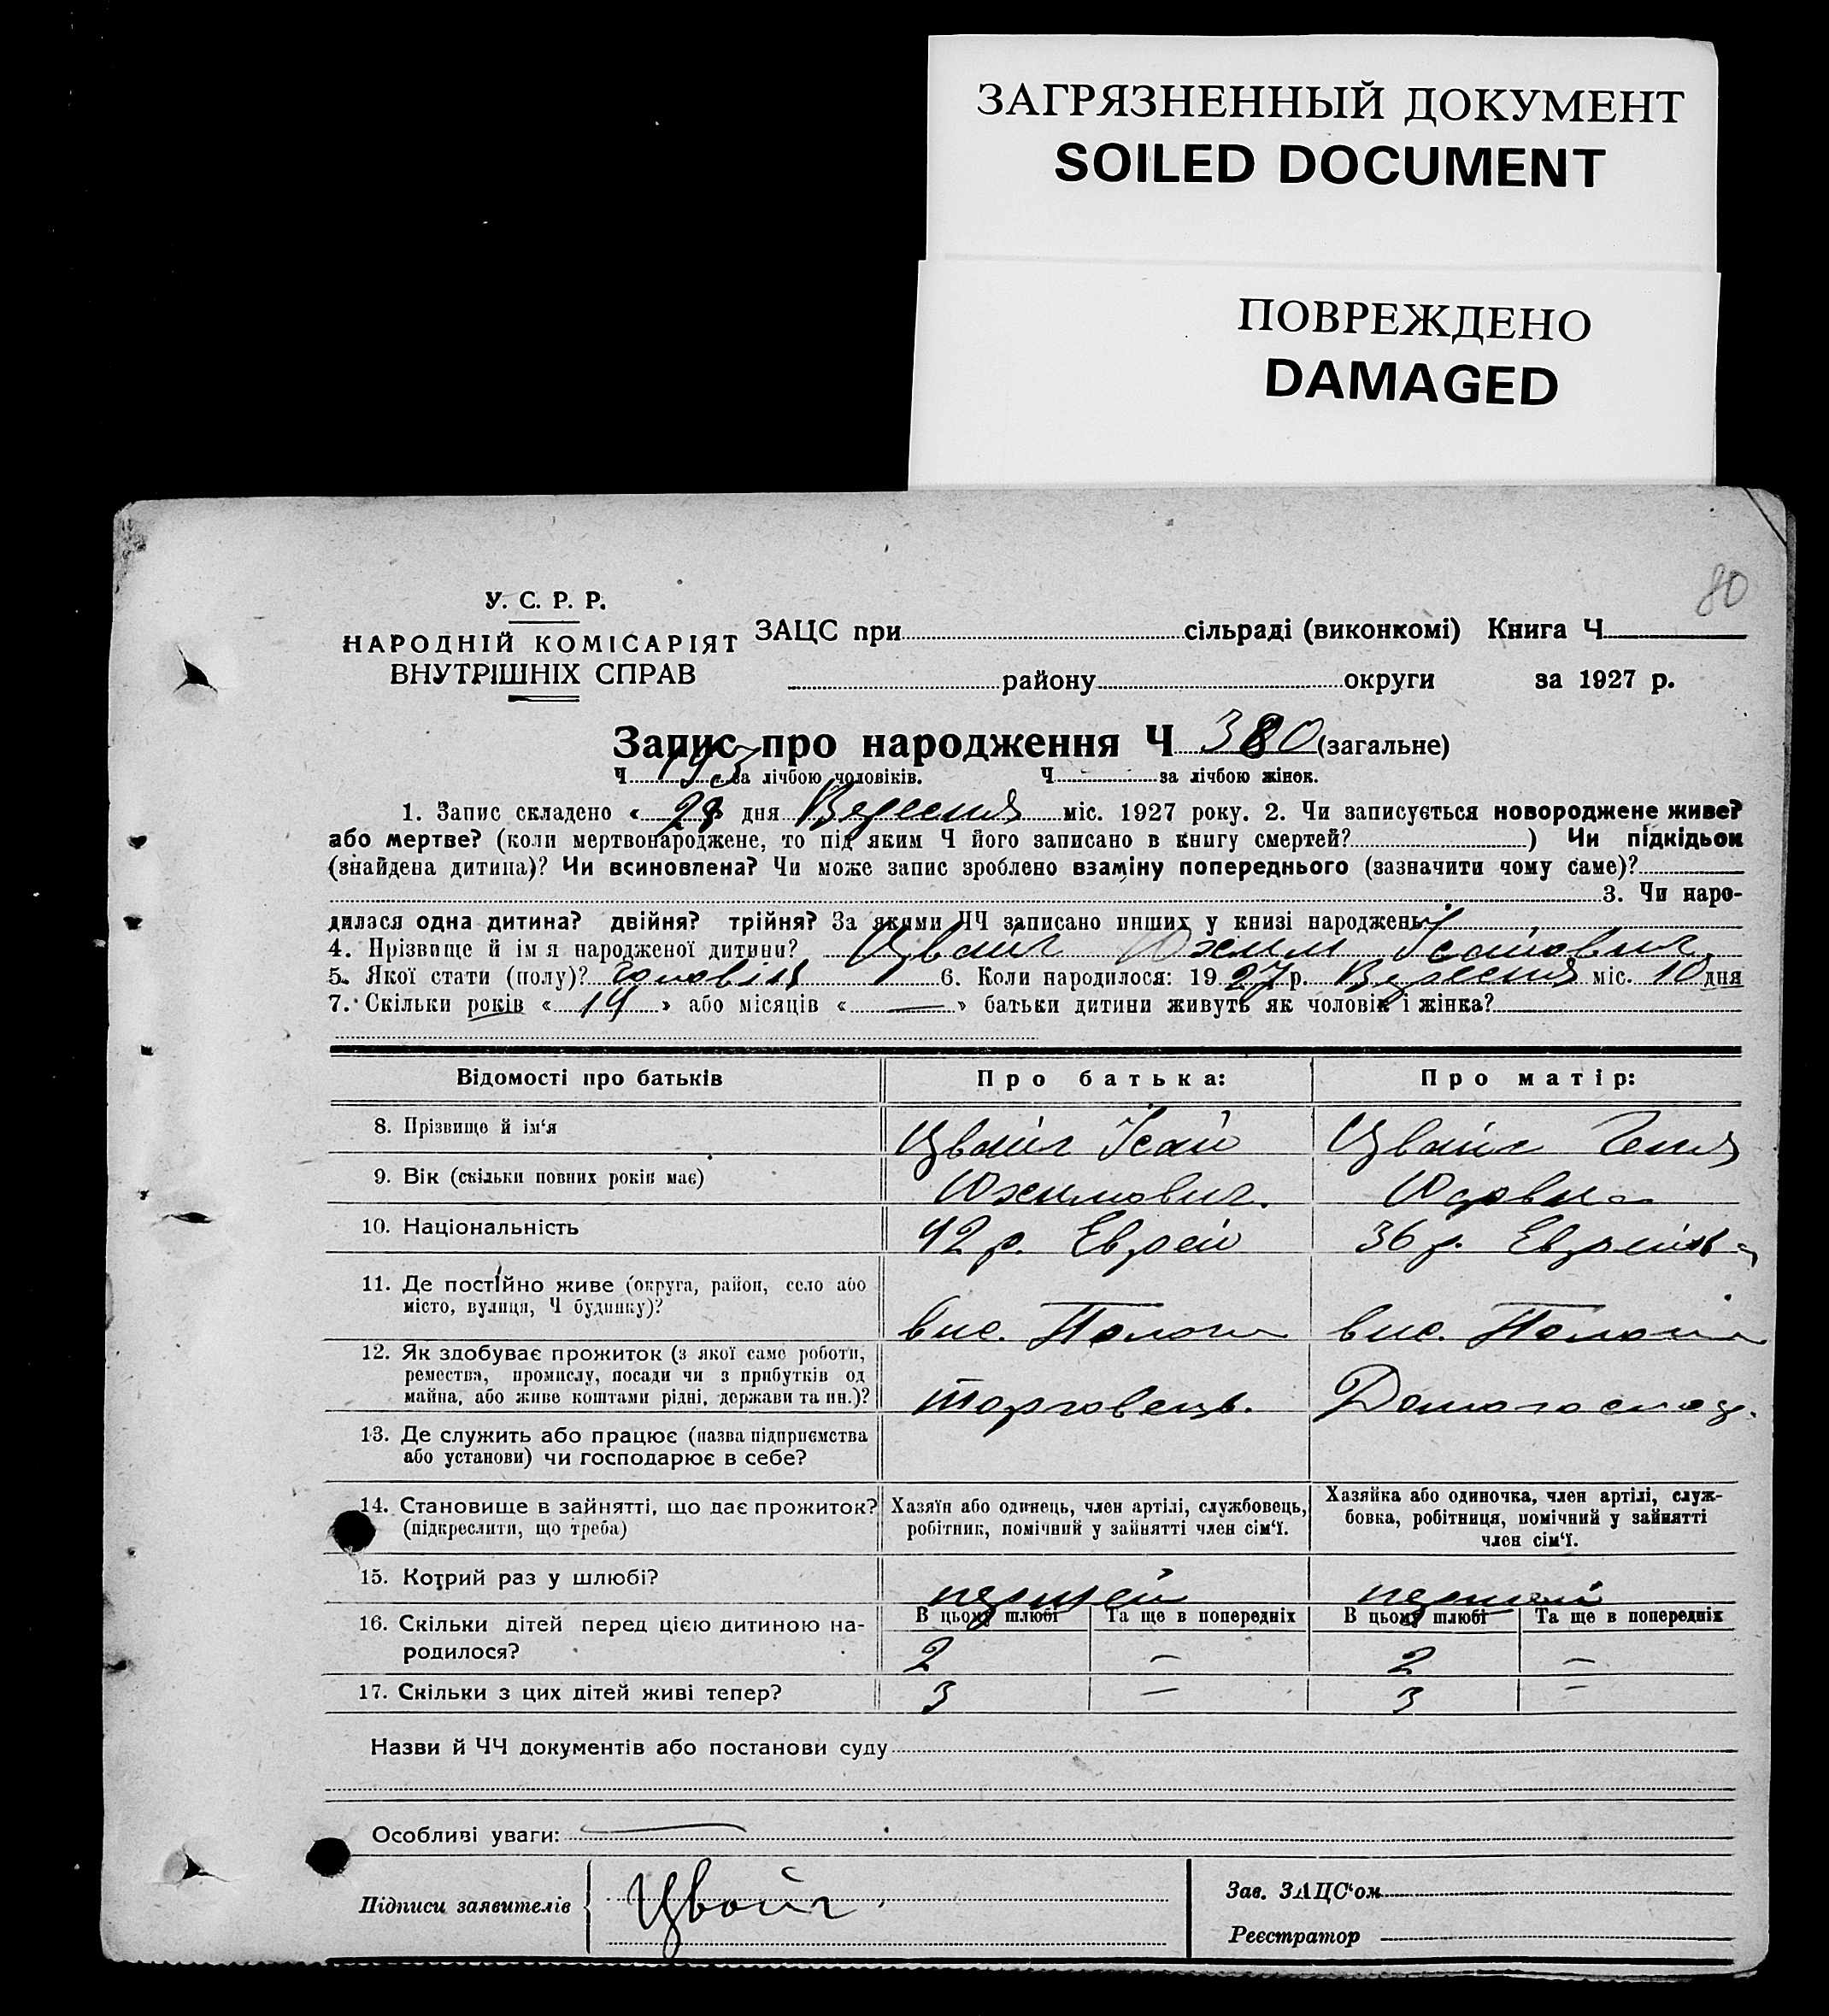 ЗАГРЯЗНЕННЫЙ ДОКУМЕНТ
SOILED DOCUMENT
ПОВРЕЖДЕНО
DAMAGED
80
У. С. Р. Р.
НАРОДНІЙ КОМІСАРІЯТ
ВНУТРІШНІХ СПРАВ
ЗАЦС при сільраді (виконкомі) Книга Ч
району округи за 1927 р.
Запис про народження Ч 380 (загальне)
Ч 193 за лічбою чоловіків. Ч за лічбою жінок.
1. Запис складено « дня Вересня міс. 1927 року. 2. Чи записується новороджене живе?
або мертве? (коли мертвонароджене, то під яким Ч його записано в книгу смертей? ) Чи підкідьок
(знайдена дитина)? Чи всиновлена? Чи може запис зроблено взаміну попереднього (зазначити чому саме)?
3. Чи наро-
дилася одна дитина? двійня? трійня? За якими ЧЧ записано инших у книзі народжень?
4. Прізвище й ім'я народженої дитини? Цвайг Юхим Ісайович
5. Якої стати (полу)? чоловіч 6. Коли народилося: 1927 р. Вересня міс. 10 дня
7. Скільки років « 14 » або місяців « — » батьки дитини живуть як чоловік і жінка?
Відомості про батьків
Про батька:
Про матір:
8. Прізвище й ім‘я
Цвайг Ісай
Цвайг Геня
9. Вік (скільки повних років має)
Юхимович.
10. Національність
42 р. Еврей
36 р. Еврейка
11. Де постійно живе (округа, район, село або
місто, вулиця, Ч будинку)?
вис. Пологи
вис. Пологи
12. Як здобуває прожиток (з якої саме роботи,
ремества, промислу, посади чи з прибутків од
майна, або живе коштами рідні, держави та ин.)?
торговець.
Домогоспод.
13. Де служить або працює (назва підприємства
або установи) чи господарює в себе?
14. Становище в зайнятті, що дає прожиток?
(підкреслити, що треба)
Хазяїн або одинець, член артілі, службовець,
робітник, помічний у зайнятті член сім‘ї.
Хазяйка або одиночка, член артілі, служ-
бовка, робітниця, помічний у зайнятті
член сім‘ї.
15. Котрий раз у шлюбі?
першей
першей
16. Скільки дітей перед цією дитиною на-
родилося?
В цьому шлюбі Та ще в попередніх
В цьому шлюбі Та ще в попередніх
2 —
2 —
17. Скільки з цих дітей живі тепер?
3 —
3 —
Назви й ЧЧ документів або постанови суду
Особливі уваги:
Підписи заявителів
Цвайг
Зав. ЗАЦС‘ом
Реєстратор